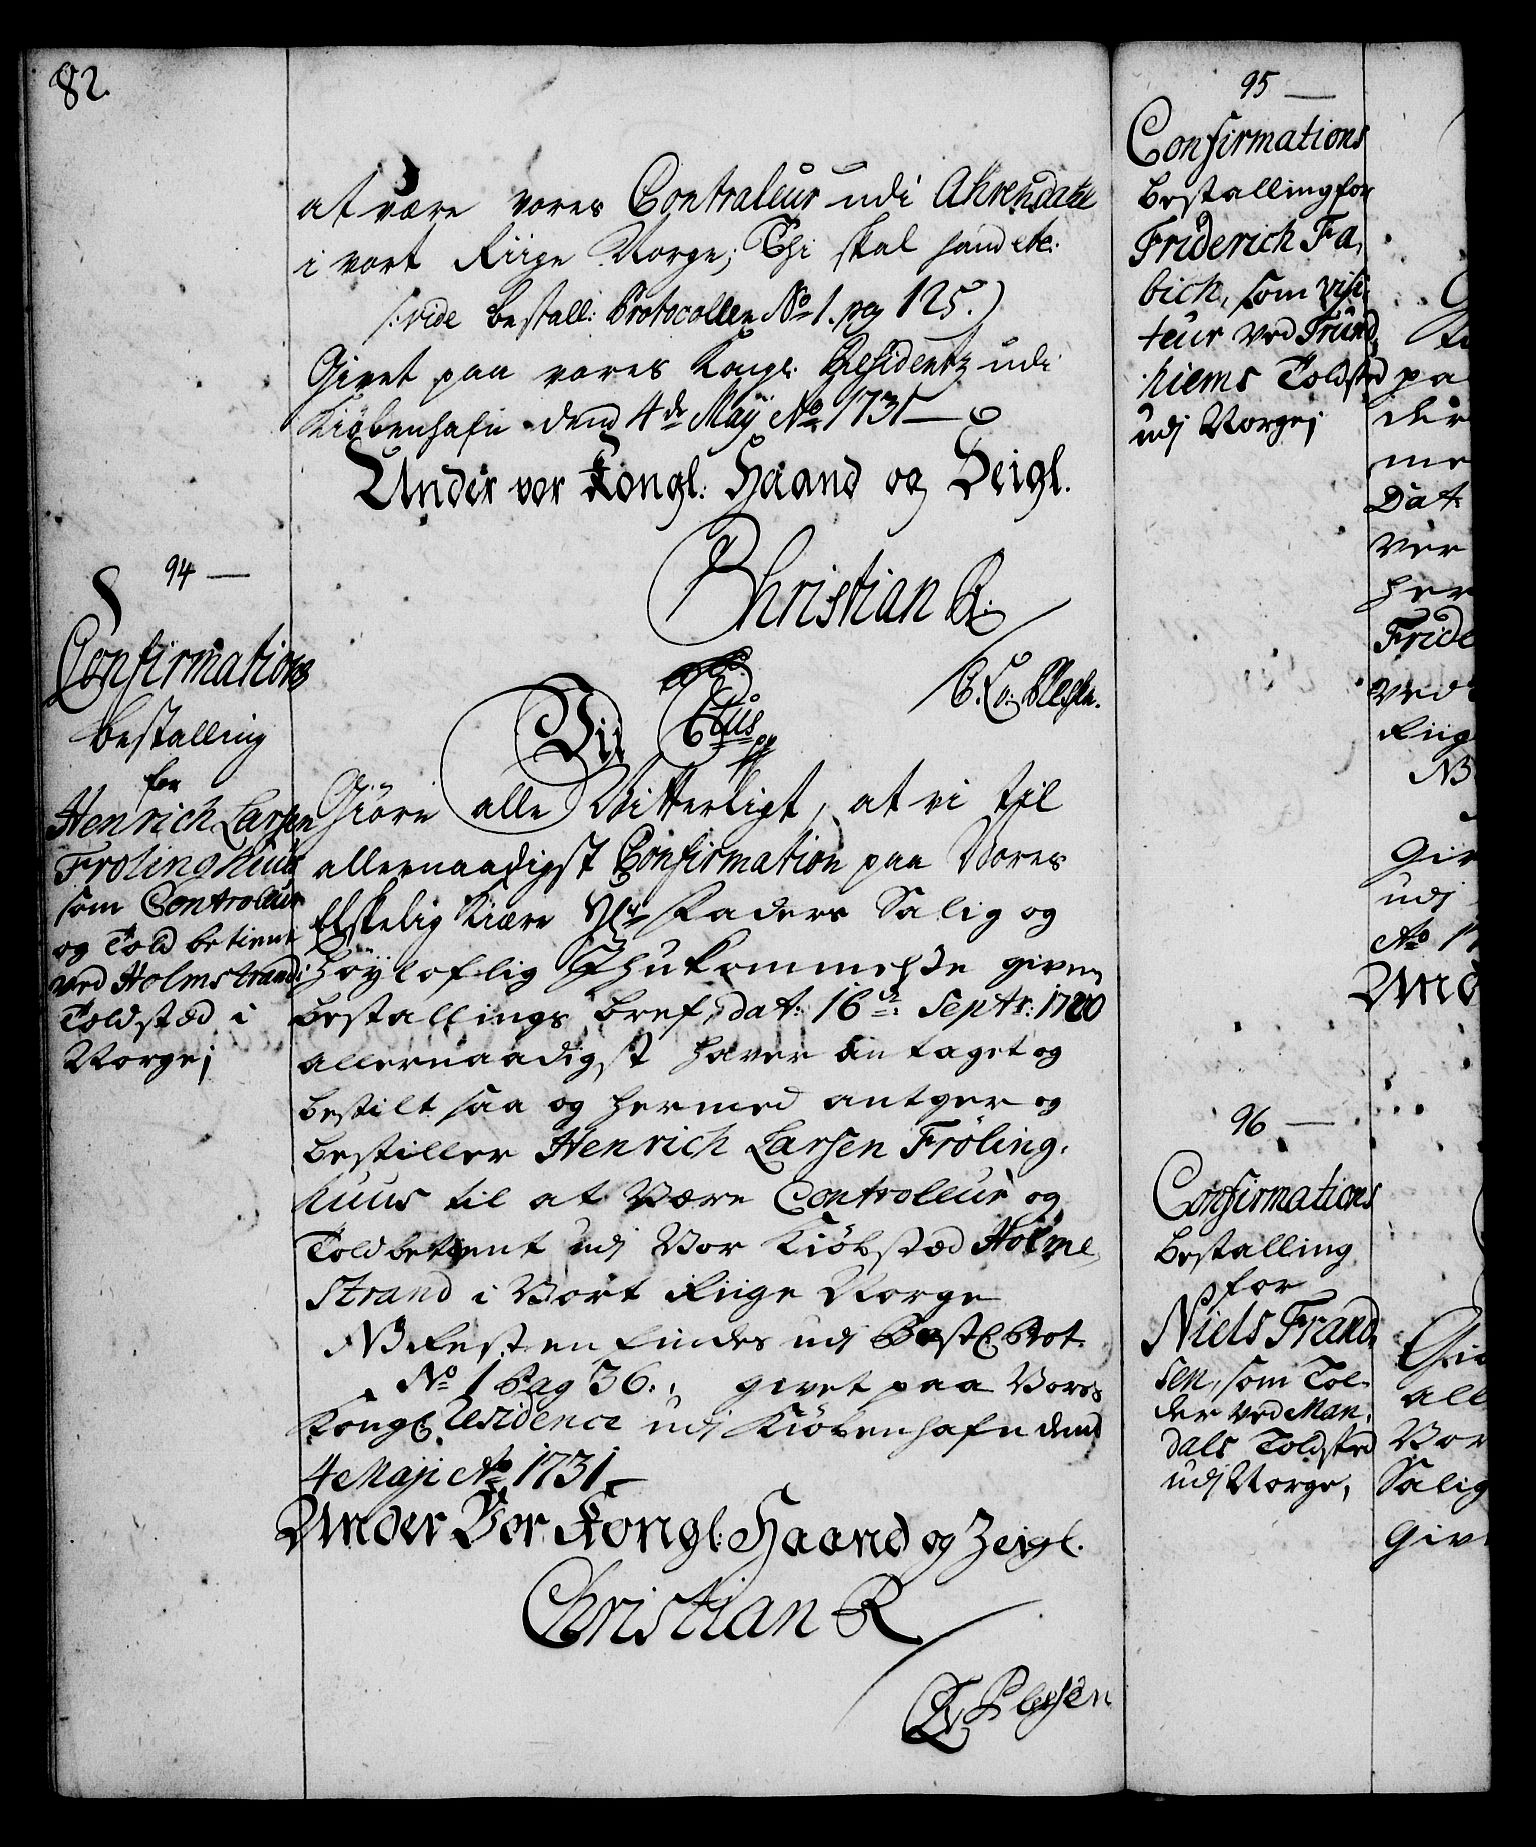 82.
at være vores Contraleur udi Ahrendahl
i vort Riige Norge; Thi skal hand etc:
/: vide bestall: Protocollen No 1. pag 125.)
Givet paa vores Kongl: Residentz udi
Kiøbenhafn dend 4de Maÿ Ao 1731
Under vor Kongl: Haand og Seigl.
Christian R:
94
Confirmations
bestalling
for
Henrich Larsen
Frolinghuus
som Controlleur
og Told betient
ved Holmstrand
Toldsted i
Norge;
Vi Ctus
Giøre alle Vitterligt, at vi til
allernaadigst Confirmation paa Vores
Elskelig Kiære Hr Faders Salig og
Höyloflig Ihukommelse given
bestallings bref, dat: 16de: Septr: 1720
allernaadigst haver antaget og
bestilt saa og hermed antager og
bestiller Henrich Larsen Fröling,
huus til at Være Controlleur og
Toldbetient udj Vor Kiöbsted Holme,
strand i Vort Riige Norge
NB Resten findes udj Bestl Prot.
No 1 Pag 36. givet paa Vores
Kongl Residence udj Kiöbenhafn dend
4 Maji Ao 1731
Under Vor Kongl: Haand og Zeigl.
Christian R
Plessen
95
Confirmations
bestalling for
Friderich Fa,
bich, som visi,
teur ved Tründ,
hiems Toldsted
udj Norge;
96
Confirmations
bestalling
for
Niels Frand,
sen, som Tol-
der ved Man,
dals Toldsted
udj Norge,
pa
der
me
Dat
Ver
her
Fride
ved
Riig
NB
Giv
udj
Ao 17
Und
Giö
all
Vor
Salig
Giv